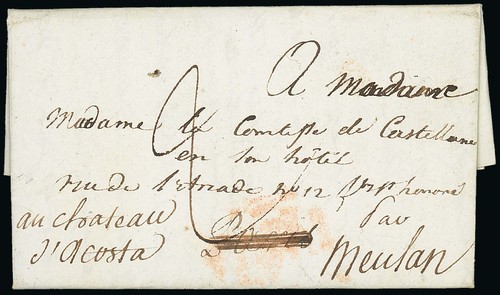 A Madame
Madame la Comtesse de Castellane
en son hôtel
rue de no 12 honoré
au chateau Par
d'Acosta à Paris Meulan